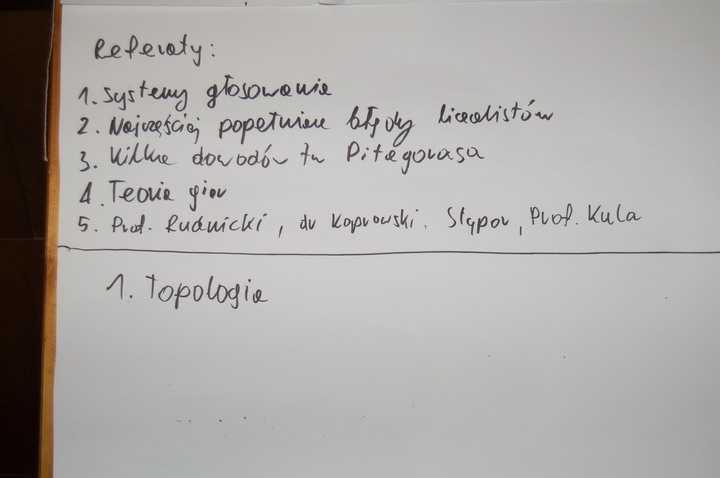 Referaty:
1. Systemy głosowania
2. Najczęściej popełniane błędy licealistów
3. Kilka dowodów tw Pitagorasa
4. Teoria gier
5. Prof. Rudnicki, dr Koprowski. Śląpor, Prof. Kula
1. Topologia